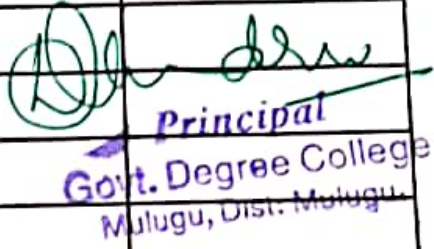 Principal
Govt. Degree College
Mulugu, Dist. Mulugu.